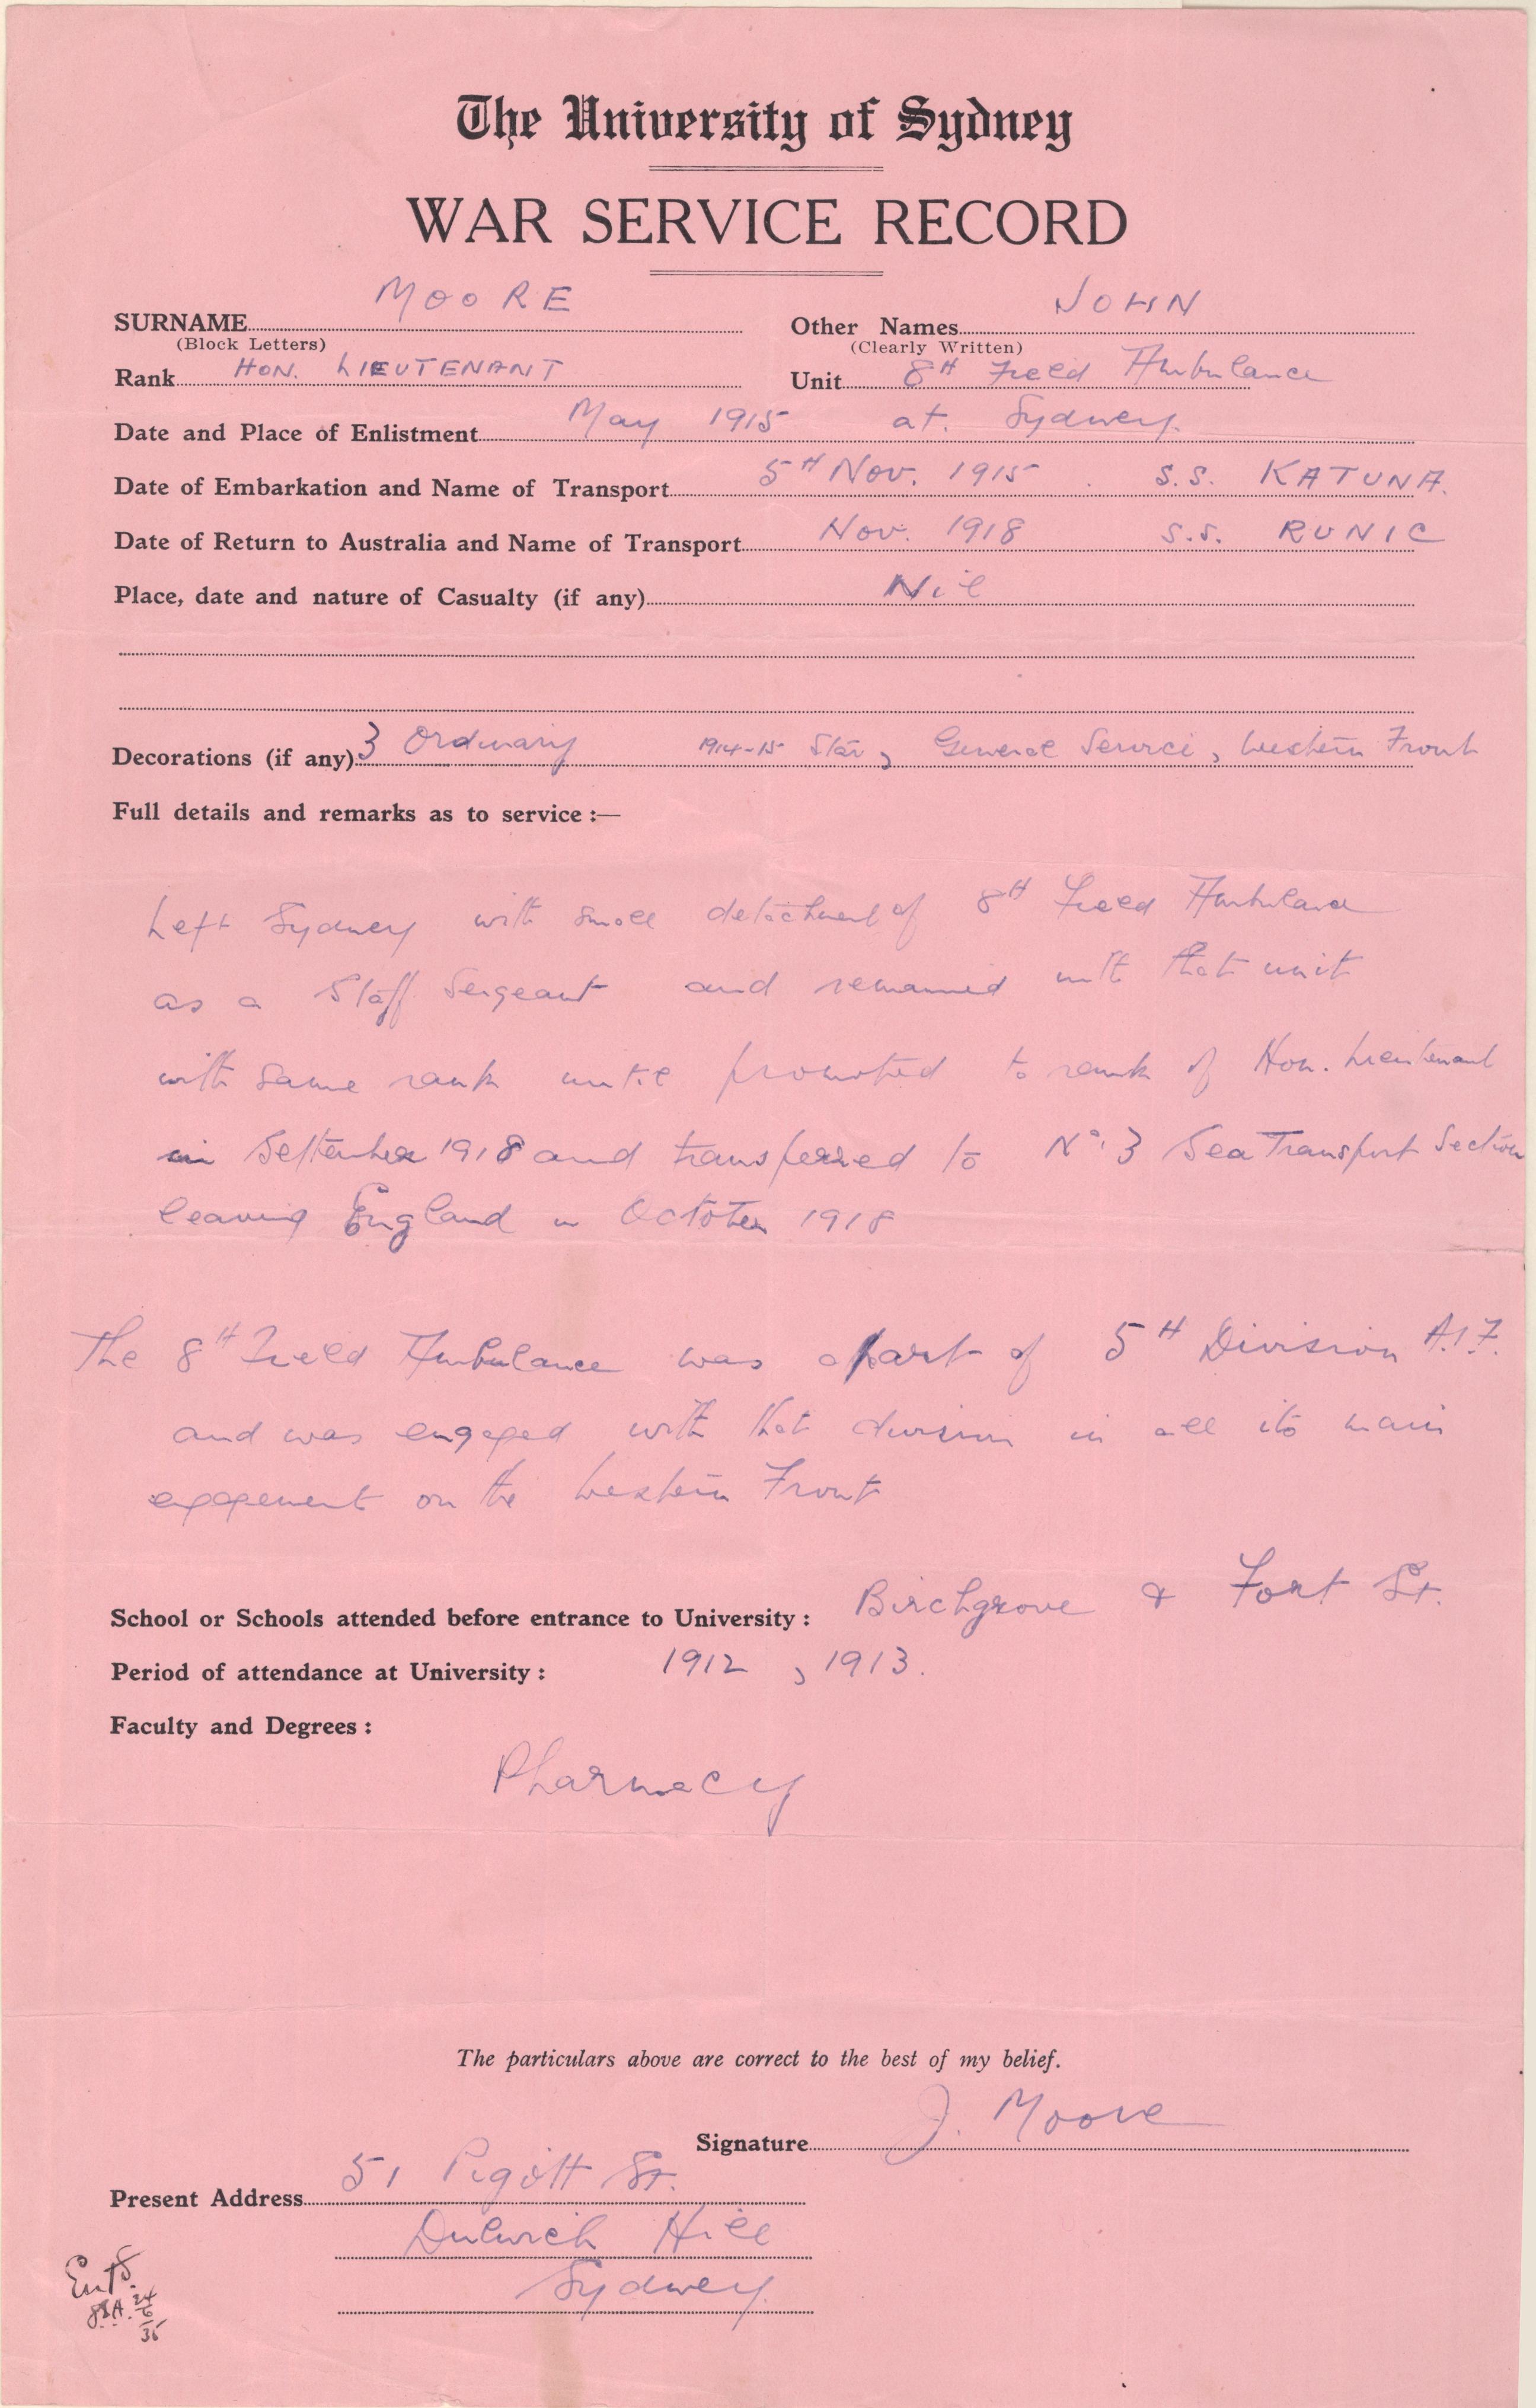 The University of Sydney
WAR SERVICE RECORD
SURNAME MOORE Other Names JOHN
(Block Letters) (Clearly Written)
Rank HON. LIEUTENANT Unit 8H Field Ambulance
Date and Place of Enlistment May 1915 at. Sydney.
Date of Embarkation and Name of Transport 5H Nov. 1915 S.S. KATUNA.
Date of Return to Australia and Name of Transport Nov. 1918 S.S. RUNIC
Place, date and nature of Casualty (if any) Nil
Decorations (if any) 3 Ordinary 1914-15 Star, General Service, Western Front
Full details and remarks as to service :—
Left Sydney with small detachment of 8H Field Ambulance
as a Staff Sergeant and remained with that unit
with same rank until promoted to rank of Hon. Lieutenant
in September 1918 and transferred to No. 3 Sea Transport Section
leaving England in October 1918
The 8H Field Ambulance was a part of 5H Division A.I.F.
and was engaged with that division in all its main
engagement on the Western Front
School or Schools attended before entrance to University : Birchgrove & Fort St.
Period of attendance at University : 1912 , 1913.
Faculty and Degrees :
Pharmacy
The particulars above are correct to the best of my belief.
Signature J. Moore
Present Address 51 Pigott St.
Dulwich Hill
Sydney.
24
6
35